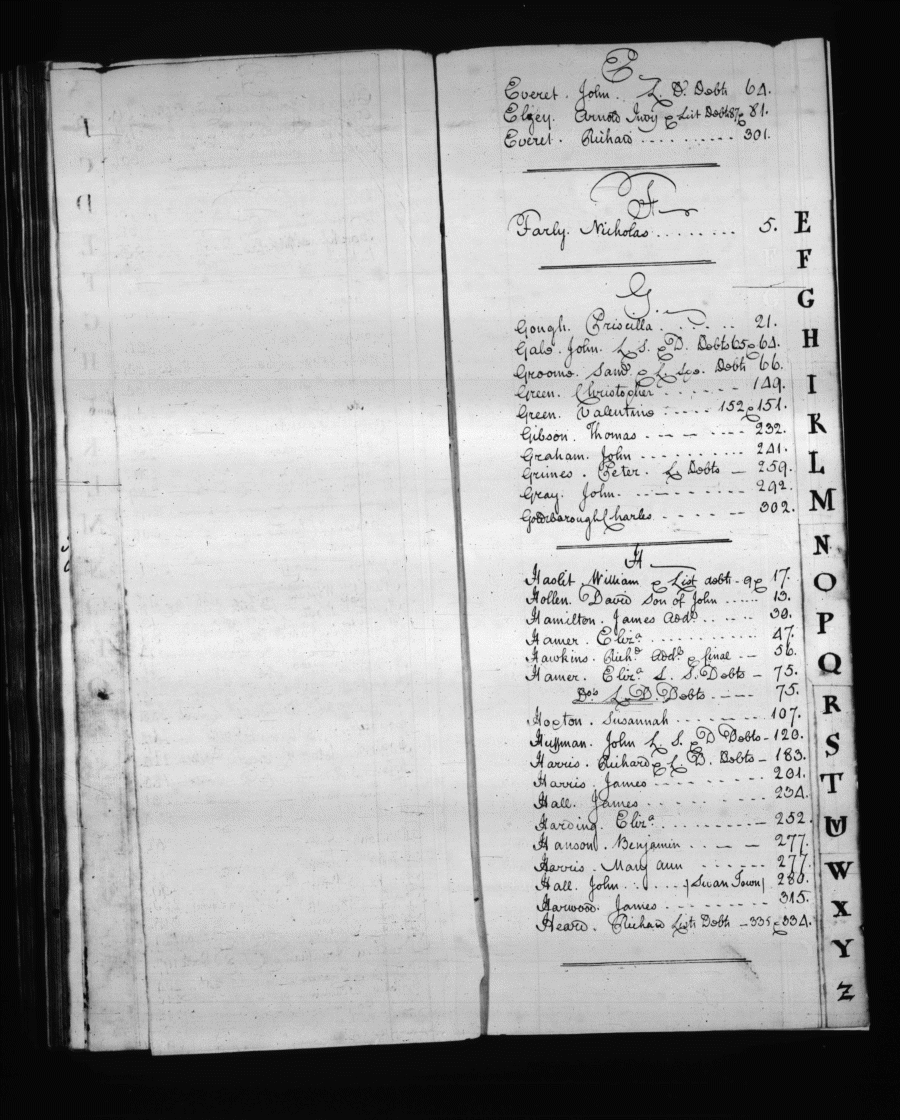 E
Everet. John. L. D. Debts 64.
Elzey. Arnold Invy & List Debts 87 & 81.
Everet. Richard .......... 301.
F
Farly. Nicholas ........ 5.
G.
Gough. Priscilla ...... 21.
Gale. John. L. S. & D. Debts 65 & 64.
Groome. Saml & L. Spe. Debts 66.
Green. Christopher ....... 149.
Green. Valentine ..... 152 & 151.
Gibson. Thomas ........ 232.
Graham. John .......... 241.
Grimes. Peter. L Debts — 259.
Gray. John. ......... 292.
Goldsborough Charles ...... 302.
H
Haslit William & List debts - 9 & 17.
Hollen. David Son of John ...... 13.
Hamilton. James Addl ..... 30.
Hamer. Eliza ............ 47.
Hawkins. Richd Addl & final — 56.
Hamer. Eliza L. S. Debts — 75.
Do L. D. Debts ---- 75.
Hoxton. Susannah ........ 107.
Huffman. John L. S. & D Debts - 120.
Harris. Richard & L. D. Debts — 183.
Harris. James .......... 201.
Hall. James .......... 234.
Harding. Eliza .......... 252.
Hanson. Benjamin .. — — 277.
Harris. Mary Ann ...... 277.
Hall. John ...... (Swan Town) 280.
Harwood. James ......... 315.
Heard. Richard List Debts — 335 & 334.
E
F
G
H
I
K
L
M
N
O
P
Q
R
S
T
W
X
Y
Z